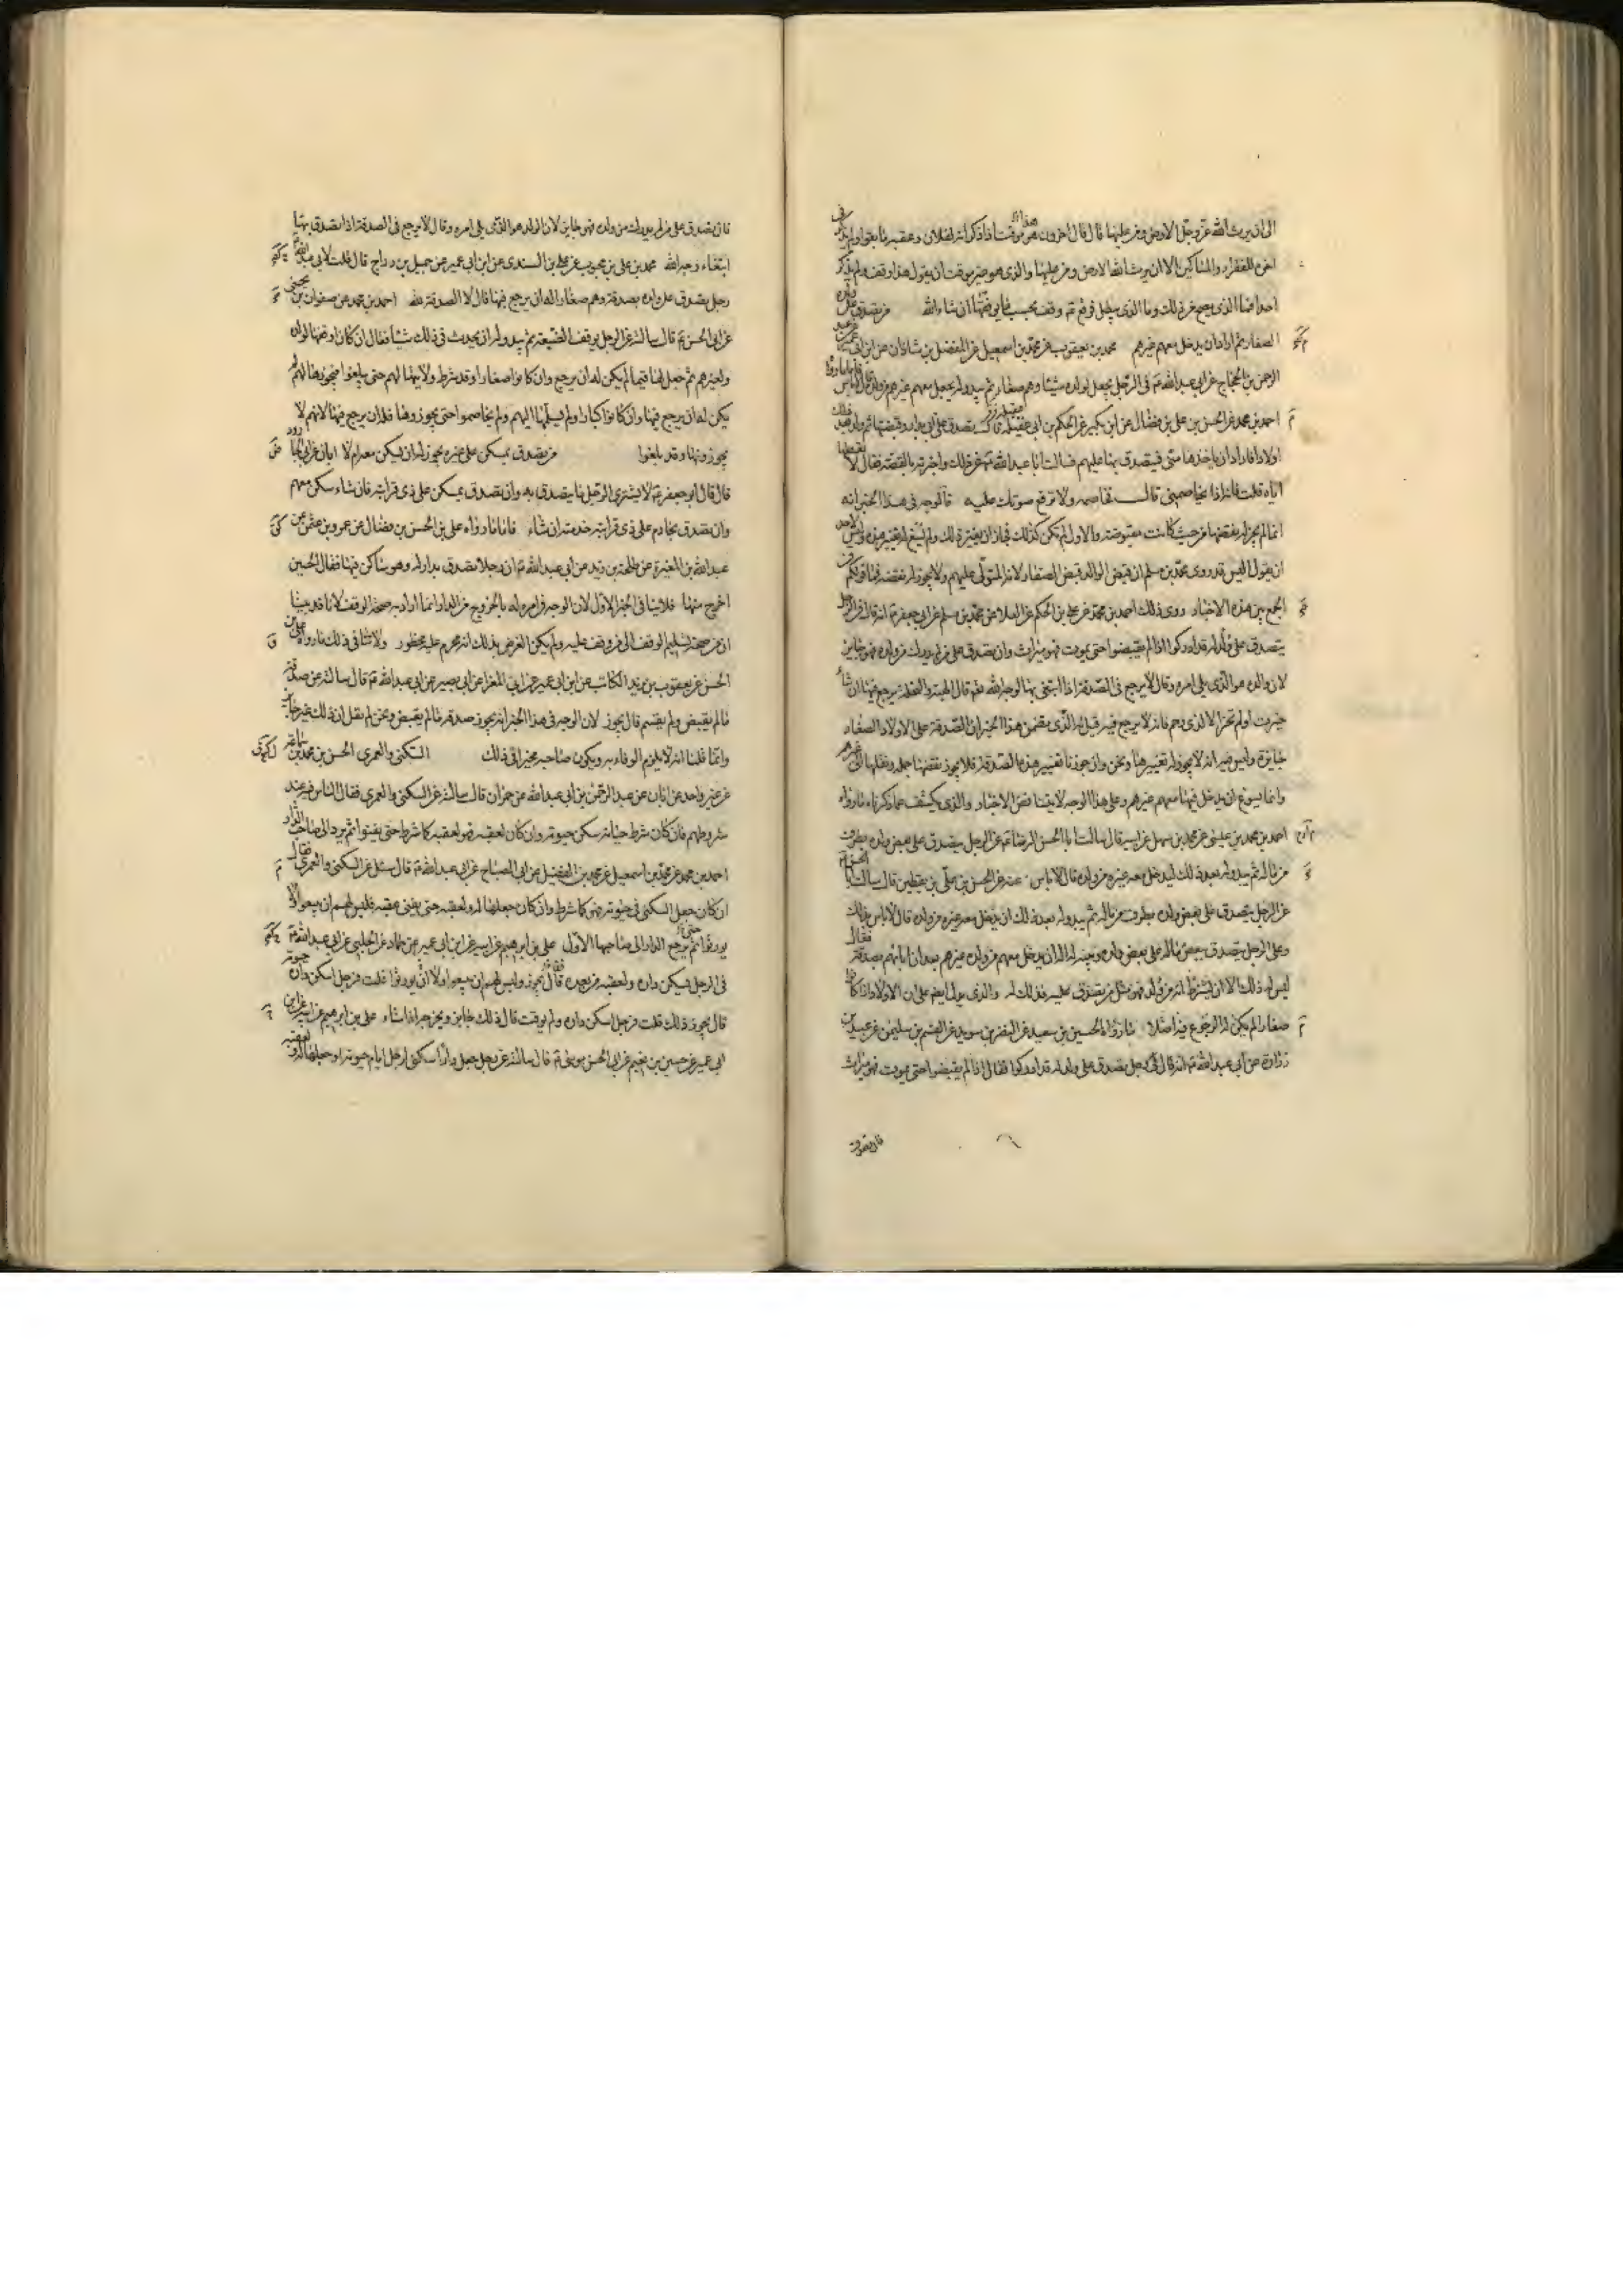 الى ان يرث الله عز وجل الارض ومن عليها قال قال اخرون هو موقت اذا ذكر انه لفلان وعقبه ما بقوا ولم يذكر في
اخره للفقراء والمساكين الا ان يرث الله الارض ومن عليها والذي هو غير موقت ان يقول هذا وقف ولم يذكر
احدا فما الذي يصح من ذلك وما الذي يبطل فوقع ع وقف بحسب ما يوقفها ان شاء الله من تصدق على ولده
الصغار ثم اراد ان يدخل معهم غيرهم محمد بن يعقوب عن محمد بن اسمعيل عن الفضل بن شاذان عن ابن ابي عمير عن عبد
الرحمن بن الحجاج عن ابي عبد الله ع في الرجل يجعل لولده شيئا وهم صغار ثم يبدو له يجعل معهم غيرهم من ولده قال لا باس فاما ما رواه
احمد بن محمد عن الحسن بن علي بن فضال عن ابن بكير عن الحكم بن ابي عقيلة قال تصدق علي ابي بدار وقبضتها ثم ولد بعد ذلك
اولاد فاراد ان ياخذها مني فيتصدق بها عليهم فسالت ابا عبد الله ع عن ذلك واخبرته بالقصة فقال لا تعطها
اياه قلت فانه اذا يخاصمني قال فخاصمه ولا ترفع صوتك عليه فالوجه في هذا الخبر انه
انما لم يجز له نقضها من حيث كانت مقبوضة والاول لم يكن كذلك فجاز ان يغير ذلك ولم يسغ له تغيير هذه وليس لاحد
ان يقول اليس قد روى محمد بن مسلم ان قبض الوالد قبض الصغار لانه المتولي عليهم ولا يجوز له نقضه فما قولكم في
الجمع بين هذه الاخبار روى ذلك احمد بن محمد عن علي بن الحكم عن العلا عن محمد بن مسلم عن ابي جعفر ع انه قال في الرجل
يتصدق على ولد له قد ادركوا اذا لم يقبضوا حتى يموت فهو ميراث وان تصدق على من لم يدرك من ولده فهو جايز
لان والده هو الذي يلي امره وقال لا يرجع في الصدقة اذا ابتغى بها لوجه الله نعم قال الهبة والنحلة يرجع فيها ان شاء
حيزت او لم تحز الا لذي رحم فانه لا يرجع فيه قيل له الذي يقضمن هذا الخبر ان الصدقة على الاولاد الصغار
جايزة وليس فيه انه لا يجوز له تغييرها ونحن وان جوزنا تغيير هذه الصدقة فلا يجوز نقضها جملة ونقلها الى غيرهم
وانما يسوغ ان يدخل فيها معهم غيرهم وعلى هذا الوجه لا يتناقض الاخبار والذي يكشف عما ذكرناه ما رواه
احمد بن محمد بن عيسى عن محمد بن سهل عن ابيه قال سالت ابا الحسن الرضا ع عن الرجل يتصدق على بعض ولده بطرف
من ماله ثم يبدو له بعد ذلك ليدخل معه غيره من ولده قال لا باس عنه عن الحسن بن علي بن يقطين قال سالت ابا الحسن ع
عن الرجل يتصدق على بعض ولده بطرف من ماله ثم يبدو له بعد ذلك ان يدخل معه غيره من ولده قال لا باس بذلك
وعن الرجل يتصدق ببعض ماله على بعض ولده ويبينه له اله ان يدخل معهم من ولده غيرهم بعد ان ابانهم بصدقة فقال
ليس له ذلك الا ان يشترط انه من ولد فهو مثل من تصدق عليه فذلك له والذي يدل ايضا على ان الاولاد اذا كانوا
صغارا لم يكن له الرجوع فيه اصلا ما رواه الحسين بن سعيد عن النضر بن سويد عن القسم بن سليمن عن عبيد بن
زرارة عن ابي عبد الله ع انه قال في رجل تصدق على ولد له قد ادركوا فقال اذا لم يقبضوا حتى يموت فهو ميراث
فان تصدق
فان تصدق على من لم يدرك من ولده فهو جايز لان الوالد هو الذي يلي امره وقال لا يرجع في الصدقة اذا تصدق بها
ابتغاء وجه الله محمد بن علي بن محبوب عن علي بن السندي عن ابن ابي عمير عن جميل بن دراج قال قلت لابي عبد الله ع
رجل يتصدق على ولده بصدقة وهم صغار اله ان يرجع فيها قال لا الصدقة لله احمد بن محمد عن صفوان بن يحيى
عن ابي الحسن ع قال سالته عن الرجل يوقف الضيعة ثم يبدو له ان يحدث في ذلك شيئا فقال ان كان اوقفها لولده
ولغيرهم ثم جعل لها قيما لم يكن له ان يرجع وان كانوا صغارا وقد شرط ولايتها لهم حتى يبلغوا فيحوزها لهم لم
يكن له ان يرجع فيها وان كانوا كبارا ولم يسلمها اليهم ولم يخاصموا حتى يحوزوها فله ان يرجع فيها لانهم لا
يحوزونها وقد بلغوا من تصدق بمسكن على غيره يجوز له ان يسكن معه ام لا ابان عن ابي الجارود
قال قال ابو جعفر ع لا يشتري الرجل ما يصدق به وان تصدق بمسكن على ذي قرابته فان شاء سكن معهم
وان تصدق بخادم على ذي قرابته خدمته ان شاء فاما ما رواه علي بن الحسن بن فضال عن عمرو بن عثمن عن
عبد الله بن المغيرة عن طلحة بن زيد عن ابي عبد الله ع ان رجلا تصدق بدار له وهو ساكن فيها فقال الحين
اخرج منها فلا ينافي الخبر الاول لان الوجه في امره له بالخروج من الدار انما اراد به صحة الوقف لانا قد بينا
ان من صحة تسليم الوقف الى من وقف عليه ولم يكن الغرض بذلك انه محرم عليه محظور ولا ينافي ذلك ما رواه علي بن
الحسن عن يعقوب بن يزيد الكاتب عن ابن ابي عمير عن ابي المغرا عن ابي بصير عن ابي عبد الله ع قال سالته عن صدقة
ما لم يقبض ولم يقسم قال يجوز لان الوجه في هذا الخبر انه يجوز صدقة ما لم يقبض ونحن لم نقل ان ذلك غير جايز
وانما قلنا انه لا يلزم الوفاء به ويكون صاحبه مخيرا في ذلك السكنى والعمرى الحسن بن محمد بن سماعة
عن غير واحد عن ابان عن عبد الرحمن بن ابي عبد الله عن حمران قال سالته عن السكنى والعمرى فقال الناس فيه عند
شروطهم فان كان شرط حياته سكن حيوته وان كان لعقبه فهو لعقبه كما شرط حتى يفنوا ثم يرد الى صاحب الدار
احمد بن محمد عن محمد بن اسمعيل عن محمد بن الفضيل عن ابي الصباح عن ابي عبد الله ع قال سئل عن السكنى والعمرى فقال
ان كان جعل السكنى في حيوته فهو كما شرط وان كان جعلها له ولعقبه حتى يفنى عقبه فليس لهم ان يبيعوا ولا
يورثوا ثم يرجع الدار الى صاحبها الاول علي بن ابرهيم عن ابيه عن ابن ابي عمير عن حماد عن الحلبي عن ابي عبد الله ع
في الرجل يسكن داره ولعقبه من بعده قال يجوز وليس لهم ان يبيعوا ولا ان يورثوا قلت فرجل اسكن داره حيوته
قال يجوز ذلك قلت فرجل اسكن داره ولم يوقت قال ذلك جايز ويخرجه اذا شاء علي بن ابرهيم عن ابيه عن ابن
ابي عمير عن حسين بن نعيم عن ابي الحسن موسى ع قال سالته عن رجل جعل دارا سكنى لرجل ايام حيوته او جعلها له ولعقبه